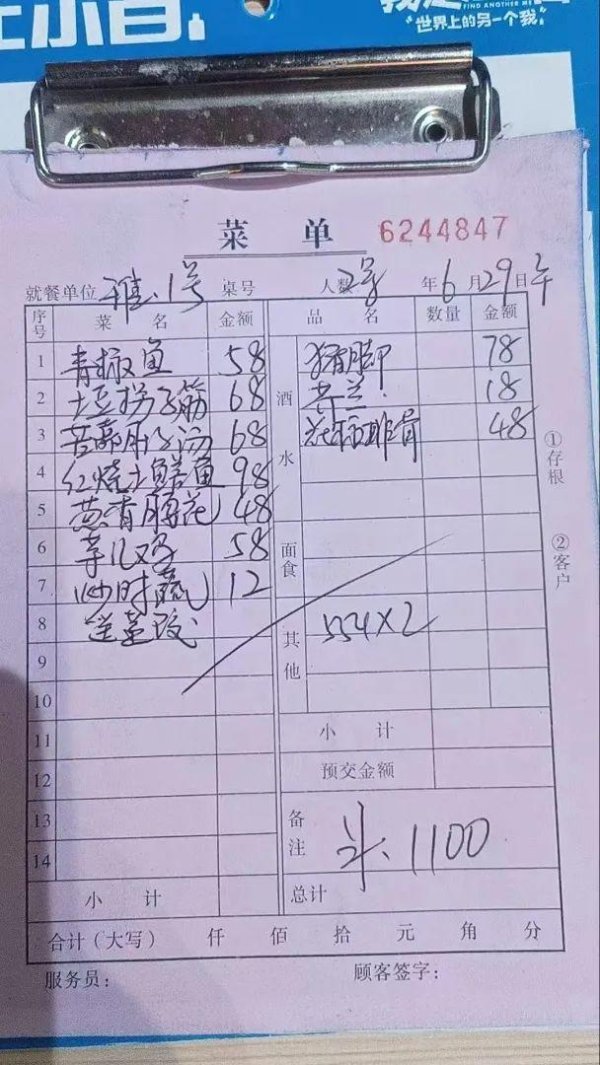 世界上的另一个我
FIND ANOTHER ME
菜 单 6244847
就餐单位 雅1号 桌号 人数 年6月29日午
序号 菜名 金额 品名 数量 金额
1 青椒鱼 58 猪脚 78
2 土豆拐子筋 68 酒水 芥兰 18
3 68 排骨 48
4 红烧土鳝鱼 98
5 葱香腰花 48
6 58 面食
7 炒时蔬 12
8 554×2 其他
9
10
11 小计
12 预交金额
13 备注 1100
14
小计 总计
合计(大写) 仟 佰 拾 元 角 分
服务员: 顾客签字:
①存根
②客户